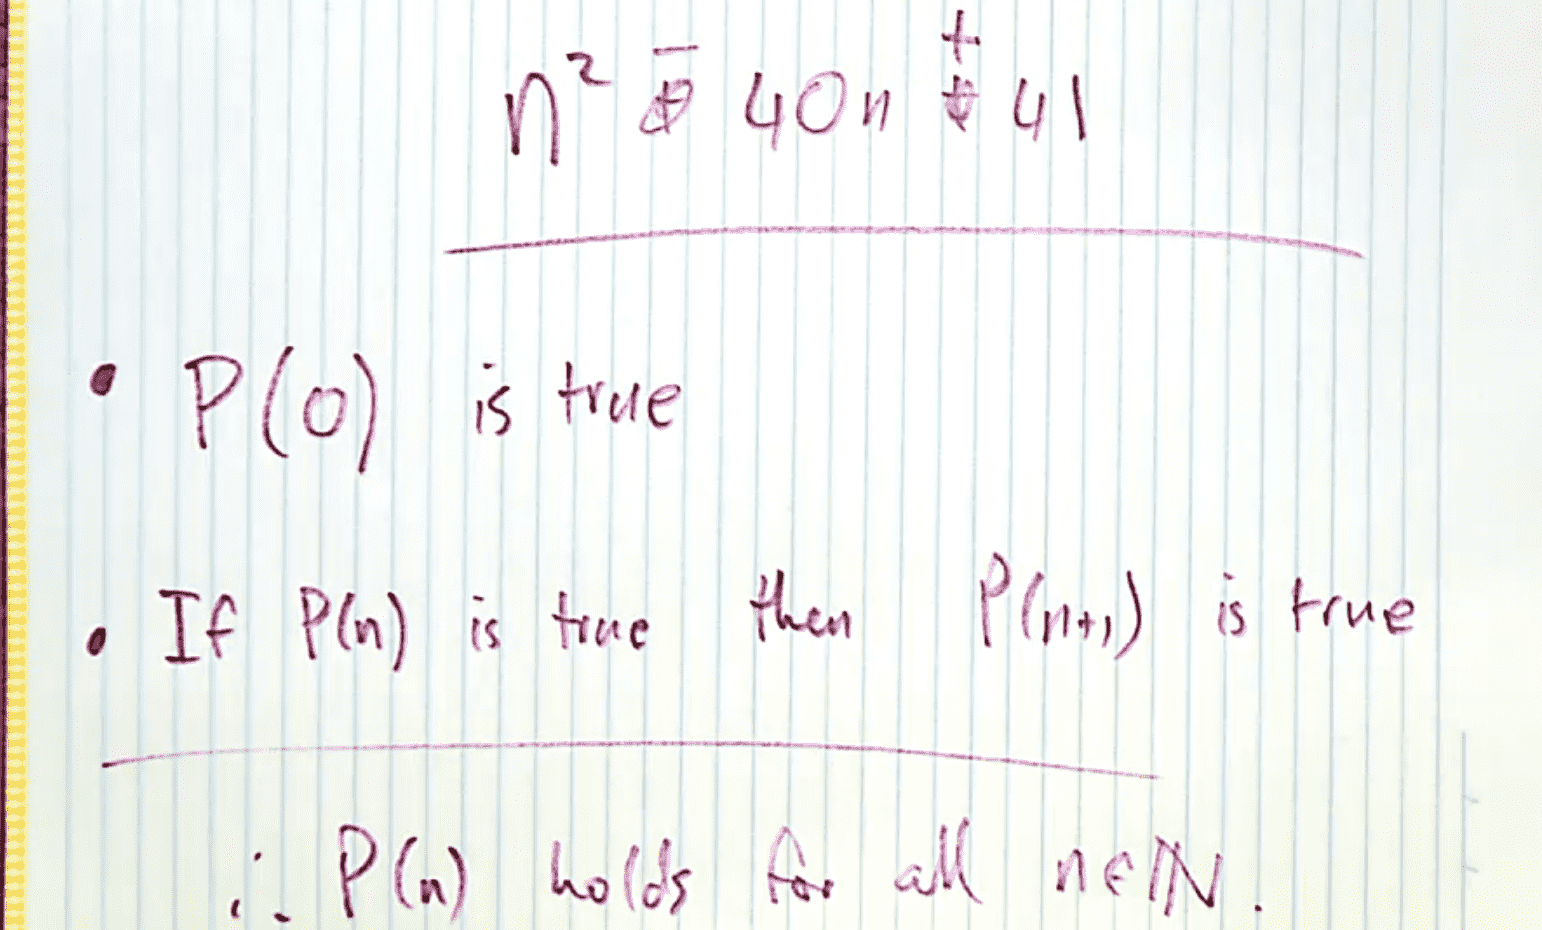 n² - 40n + 41
• P(0) is true
• If P(n) is true then P(n+1) is true
∴ P(n) holds for all n∈ℕ.